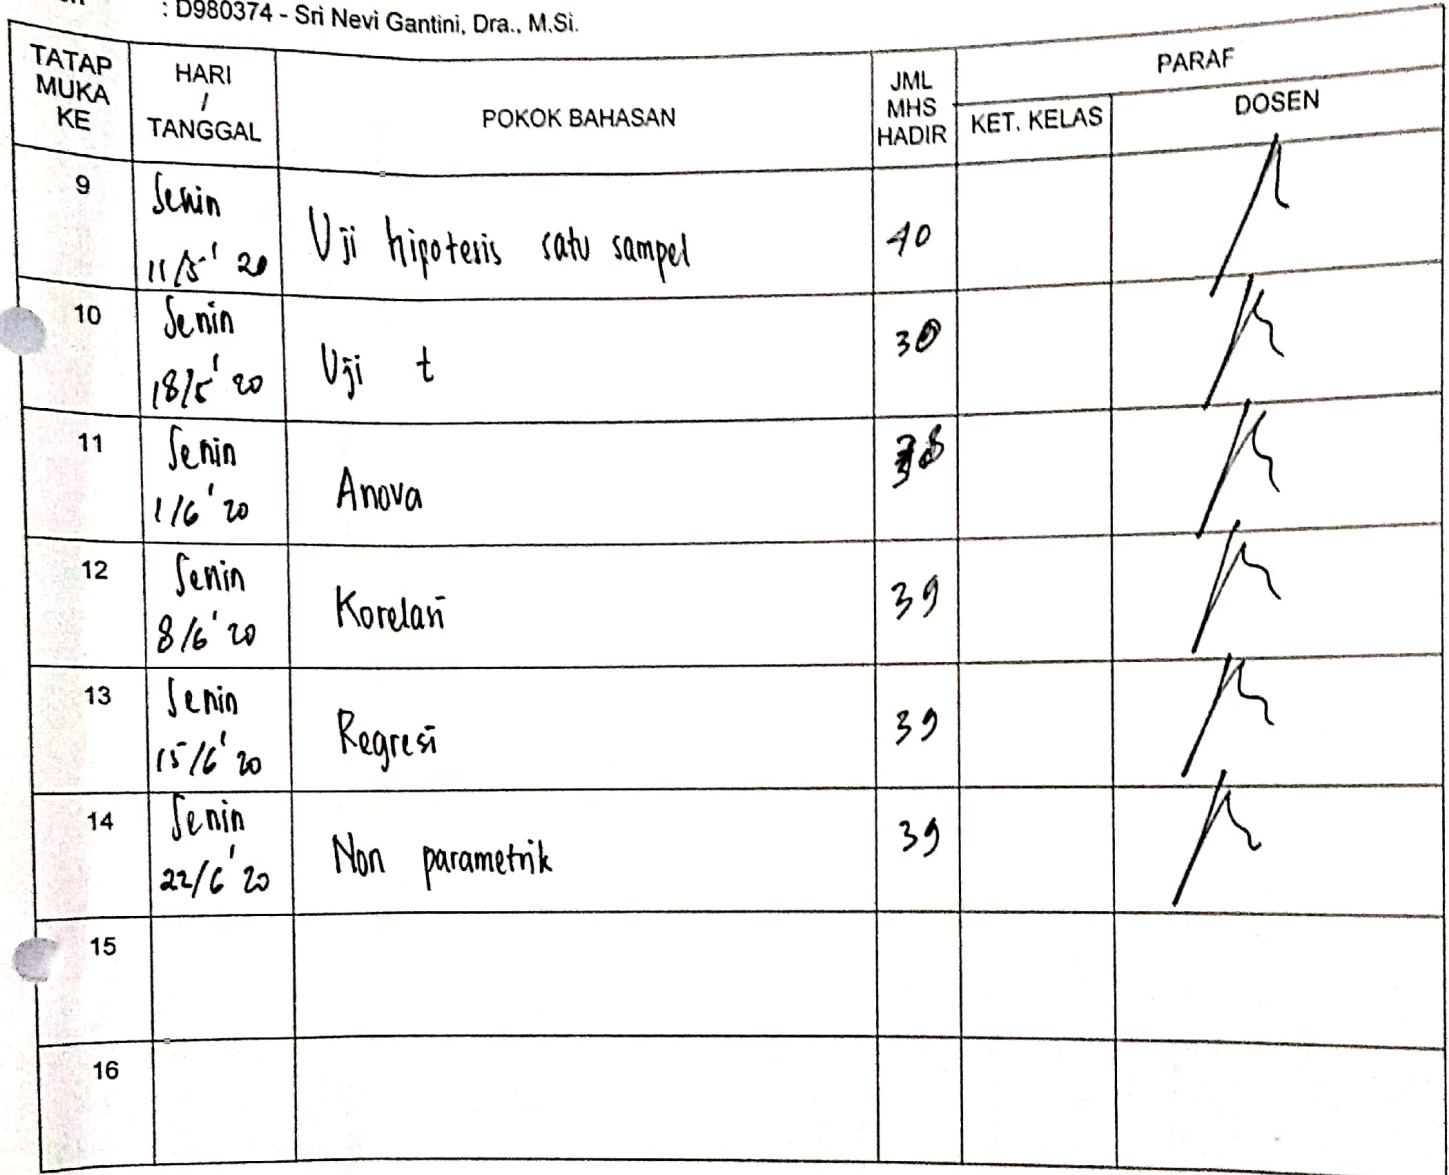 : D980374 - Sri Nevi Gantini, Dra., M.Si.
TATAP MUKA KE
HARI / TANGGAL
POKOK BAHASAN
JML MHS HADIR
PARAF
KET. KELAS
DOSEN
9
Senin
11/5' 20
Uji hipotesis satu sampel
40
10
Senin
18/5' 20
Uji t
11
Senin
1/6' 20
Anova
12
Senin
8/6' 20
Korelasi
39
13
Senin
15/6' 20
Regresi
39
14
Senin
22/6' 20
Non parametrik
39
15
16